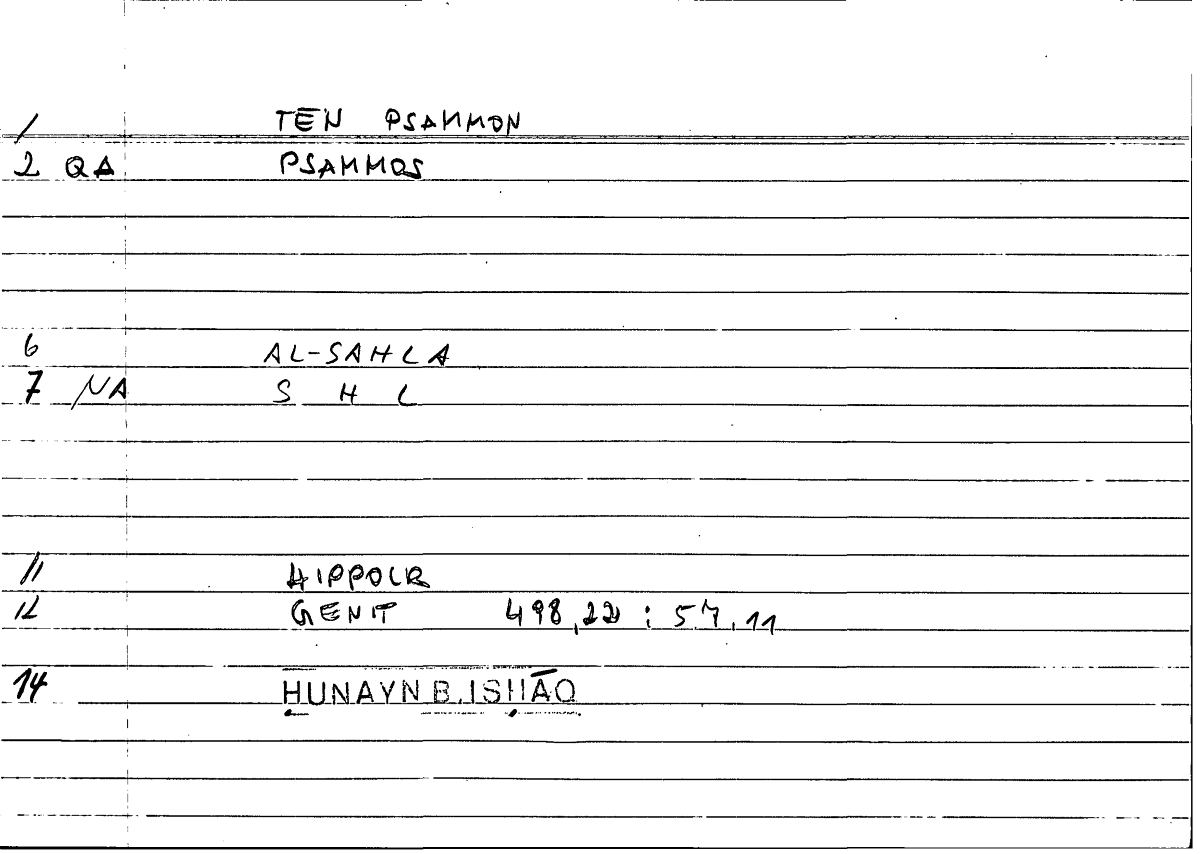 1 TĒN PSAMMON
2 QA PSAMMOS
6 AL-SAHLA
7 NA S H L
11 HIPPOCR
12 GENIT 498,22 : 57,11
14 ḤUNAYN B. ISḤĀQ